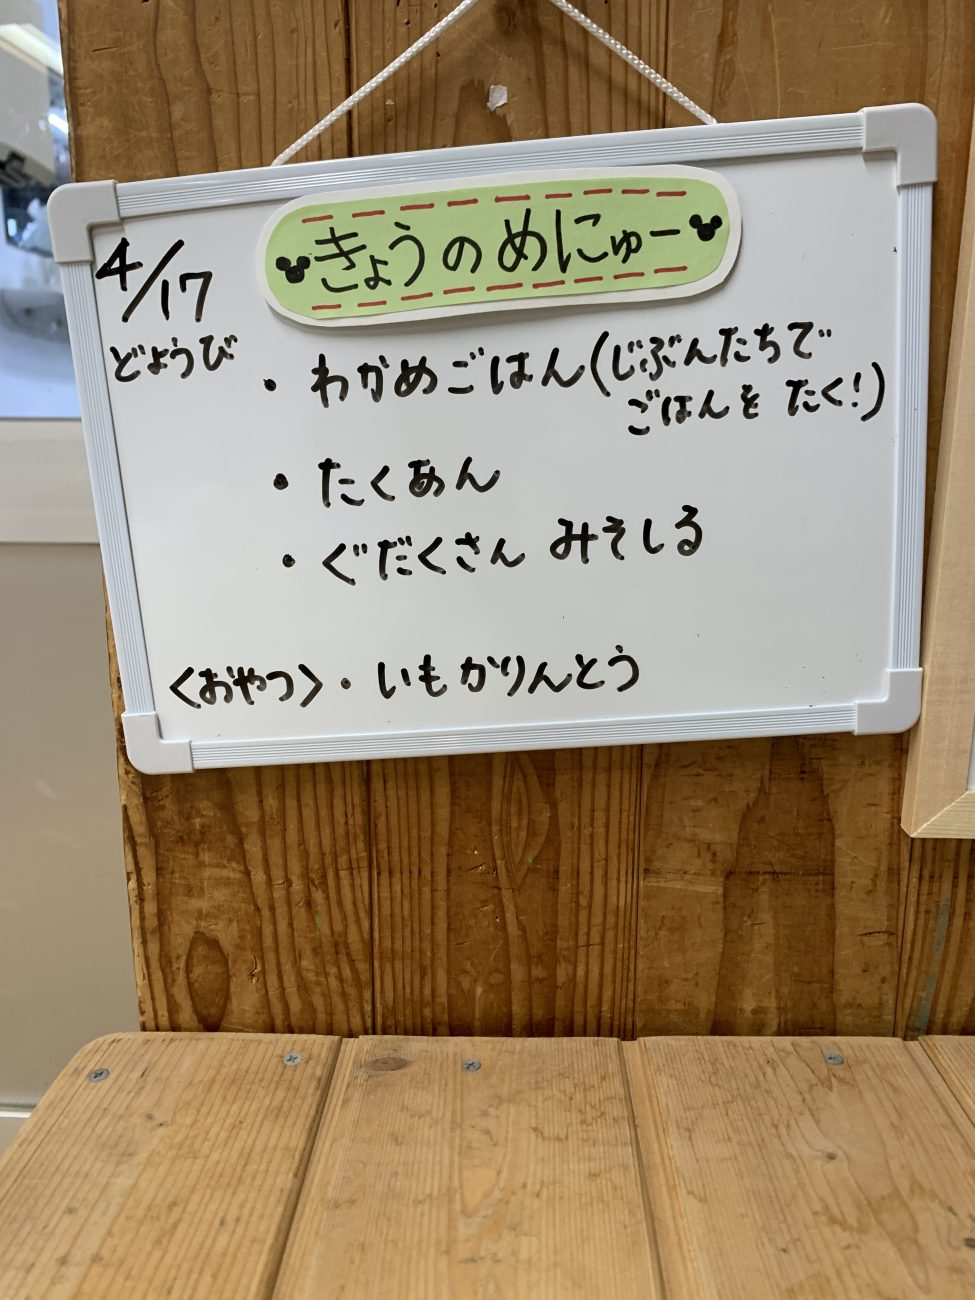 きょうのめにゅー
4/17
どようび
・わかめごはん(じぶんたちで
ごはんを たく!)
・たくあん
・ぐだくさん みそしる
〈おやつ〉・いもかりんとう